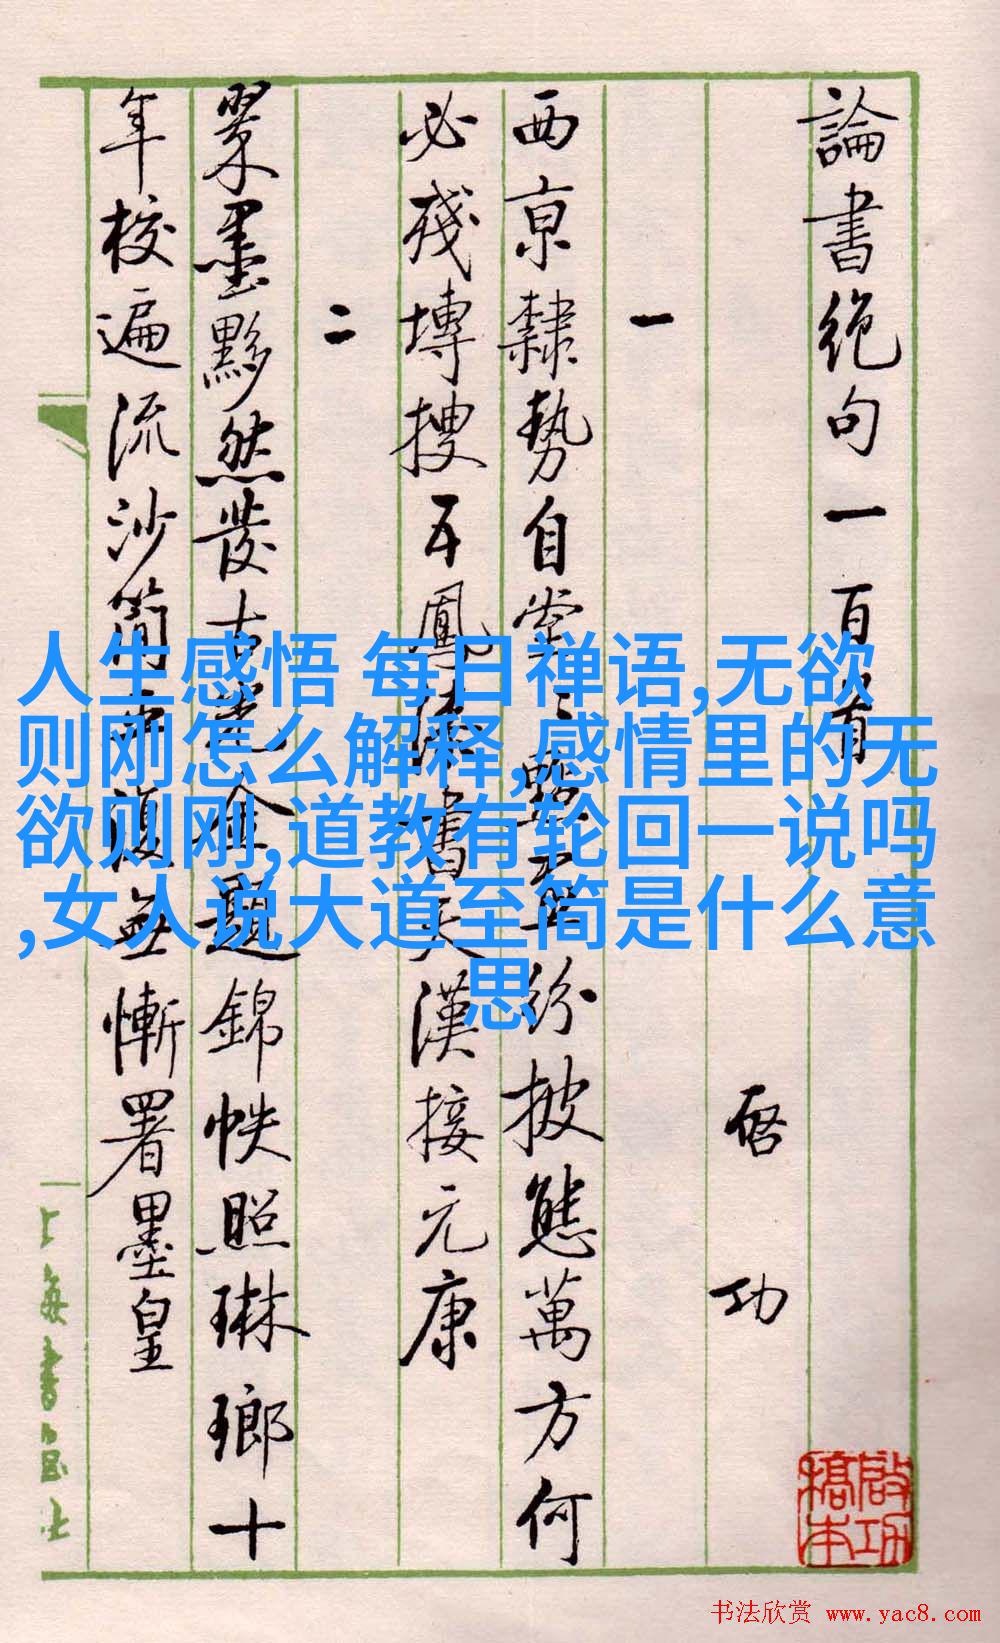 論書絶句一百首
启功
一
西京隸勢自堂〻點畫紛披態萬方何
必殘塼搜五鳳漆書天漢接元康
二
翠墨黟然發古光金題錦帙照琳瑯十
年校遍流沙簡平復無慚署墨皇
啟功
稿本
人生感悟 每日禅语,无欲
则刚怎么解释,感情里的无
欲则刚,道教有轮回一说吗
,女人说大道至简是什么意
思
书法欣赏 www.yac8.com